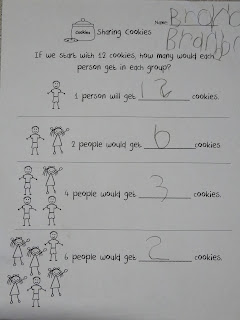 Name:
Cookies
Sharing Cookies
If we start with 12 cookies, how many would each
person get in each group?
1 person will get 12 cookies.
2 people would get 6 cookies.
4 people would get 3 cookies.
6 people would get 2 cookies.